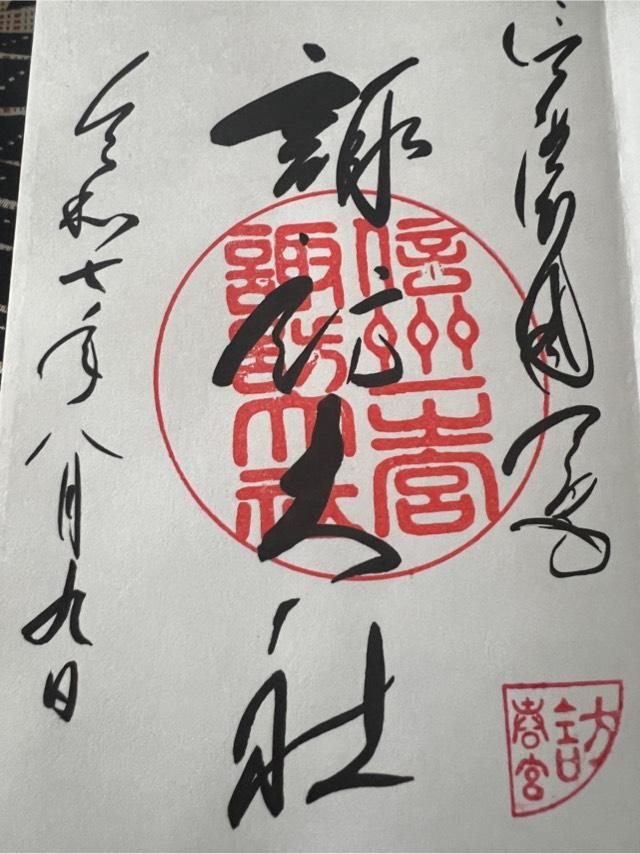 信濃國一宮
諏訪大社
令和七年八月九日
信州一宮
諏訪大社
訪
春宮